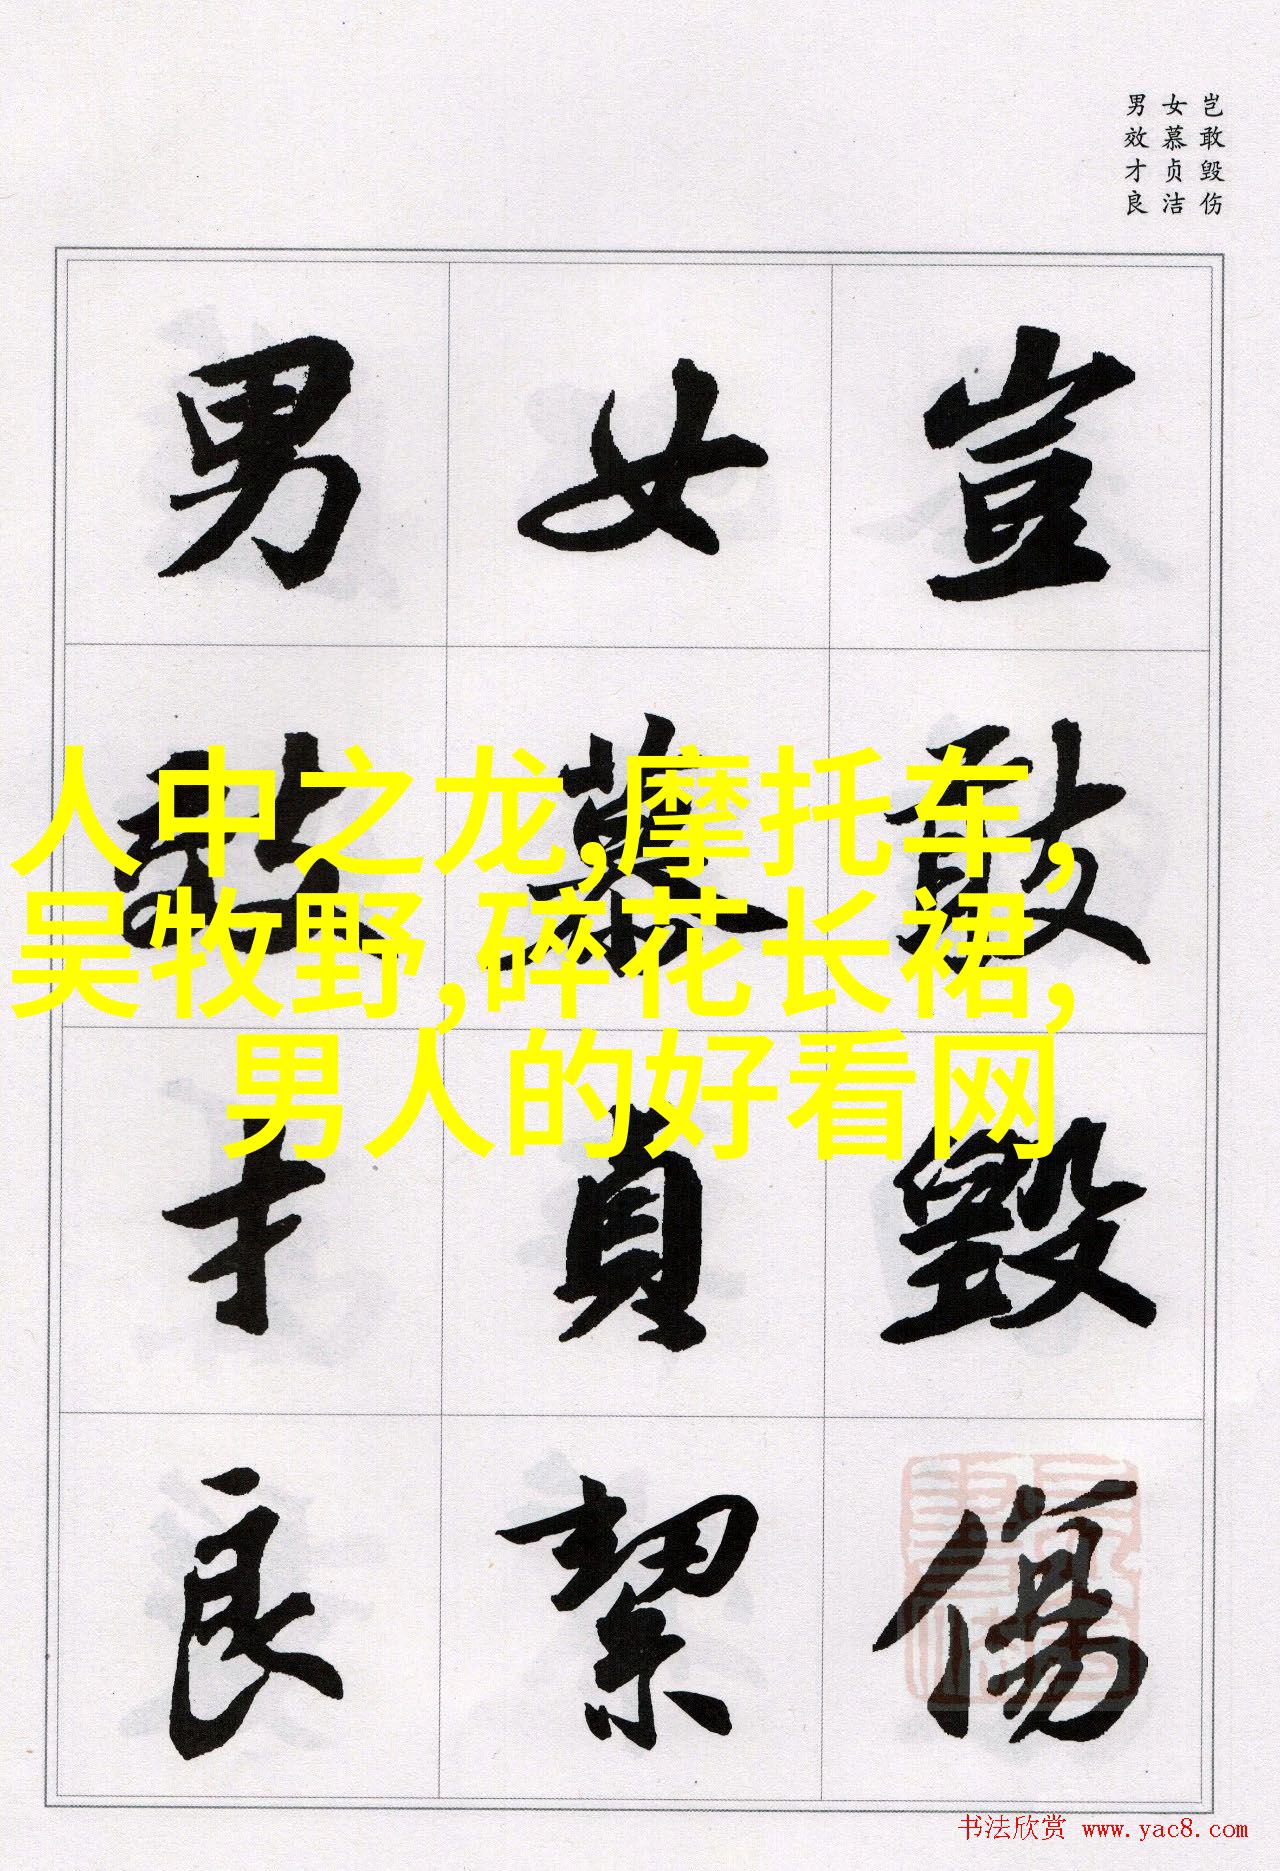 岂敢毁伤
女慕贞洁
男效才良
豈敢毀傷
女慕貞絜
男效才良
人中之龙,摩托车,
吴牧野,碎花长裙,
男人的好看网
书法欣赏 www.yac8.com